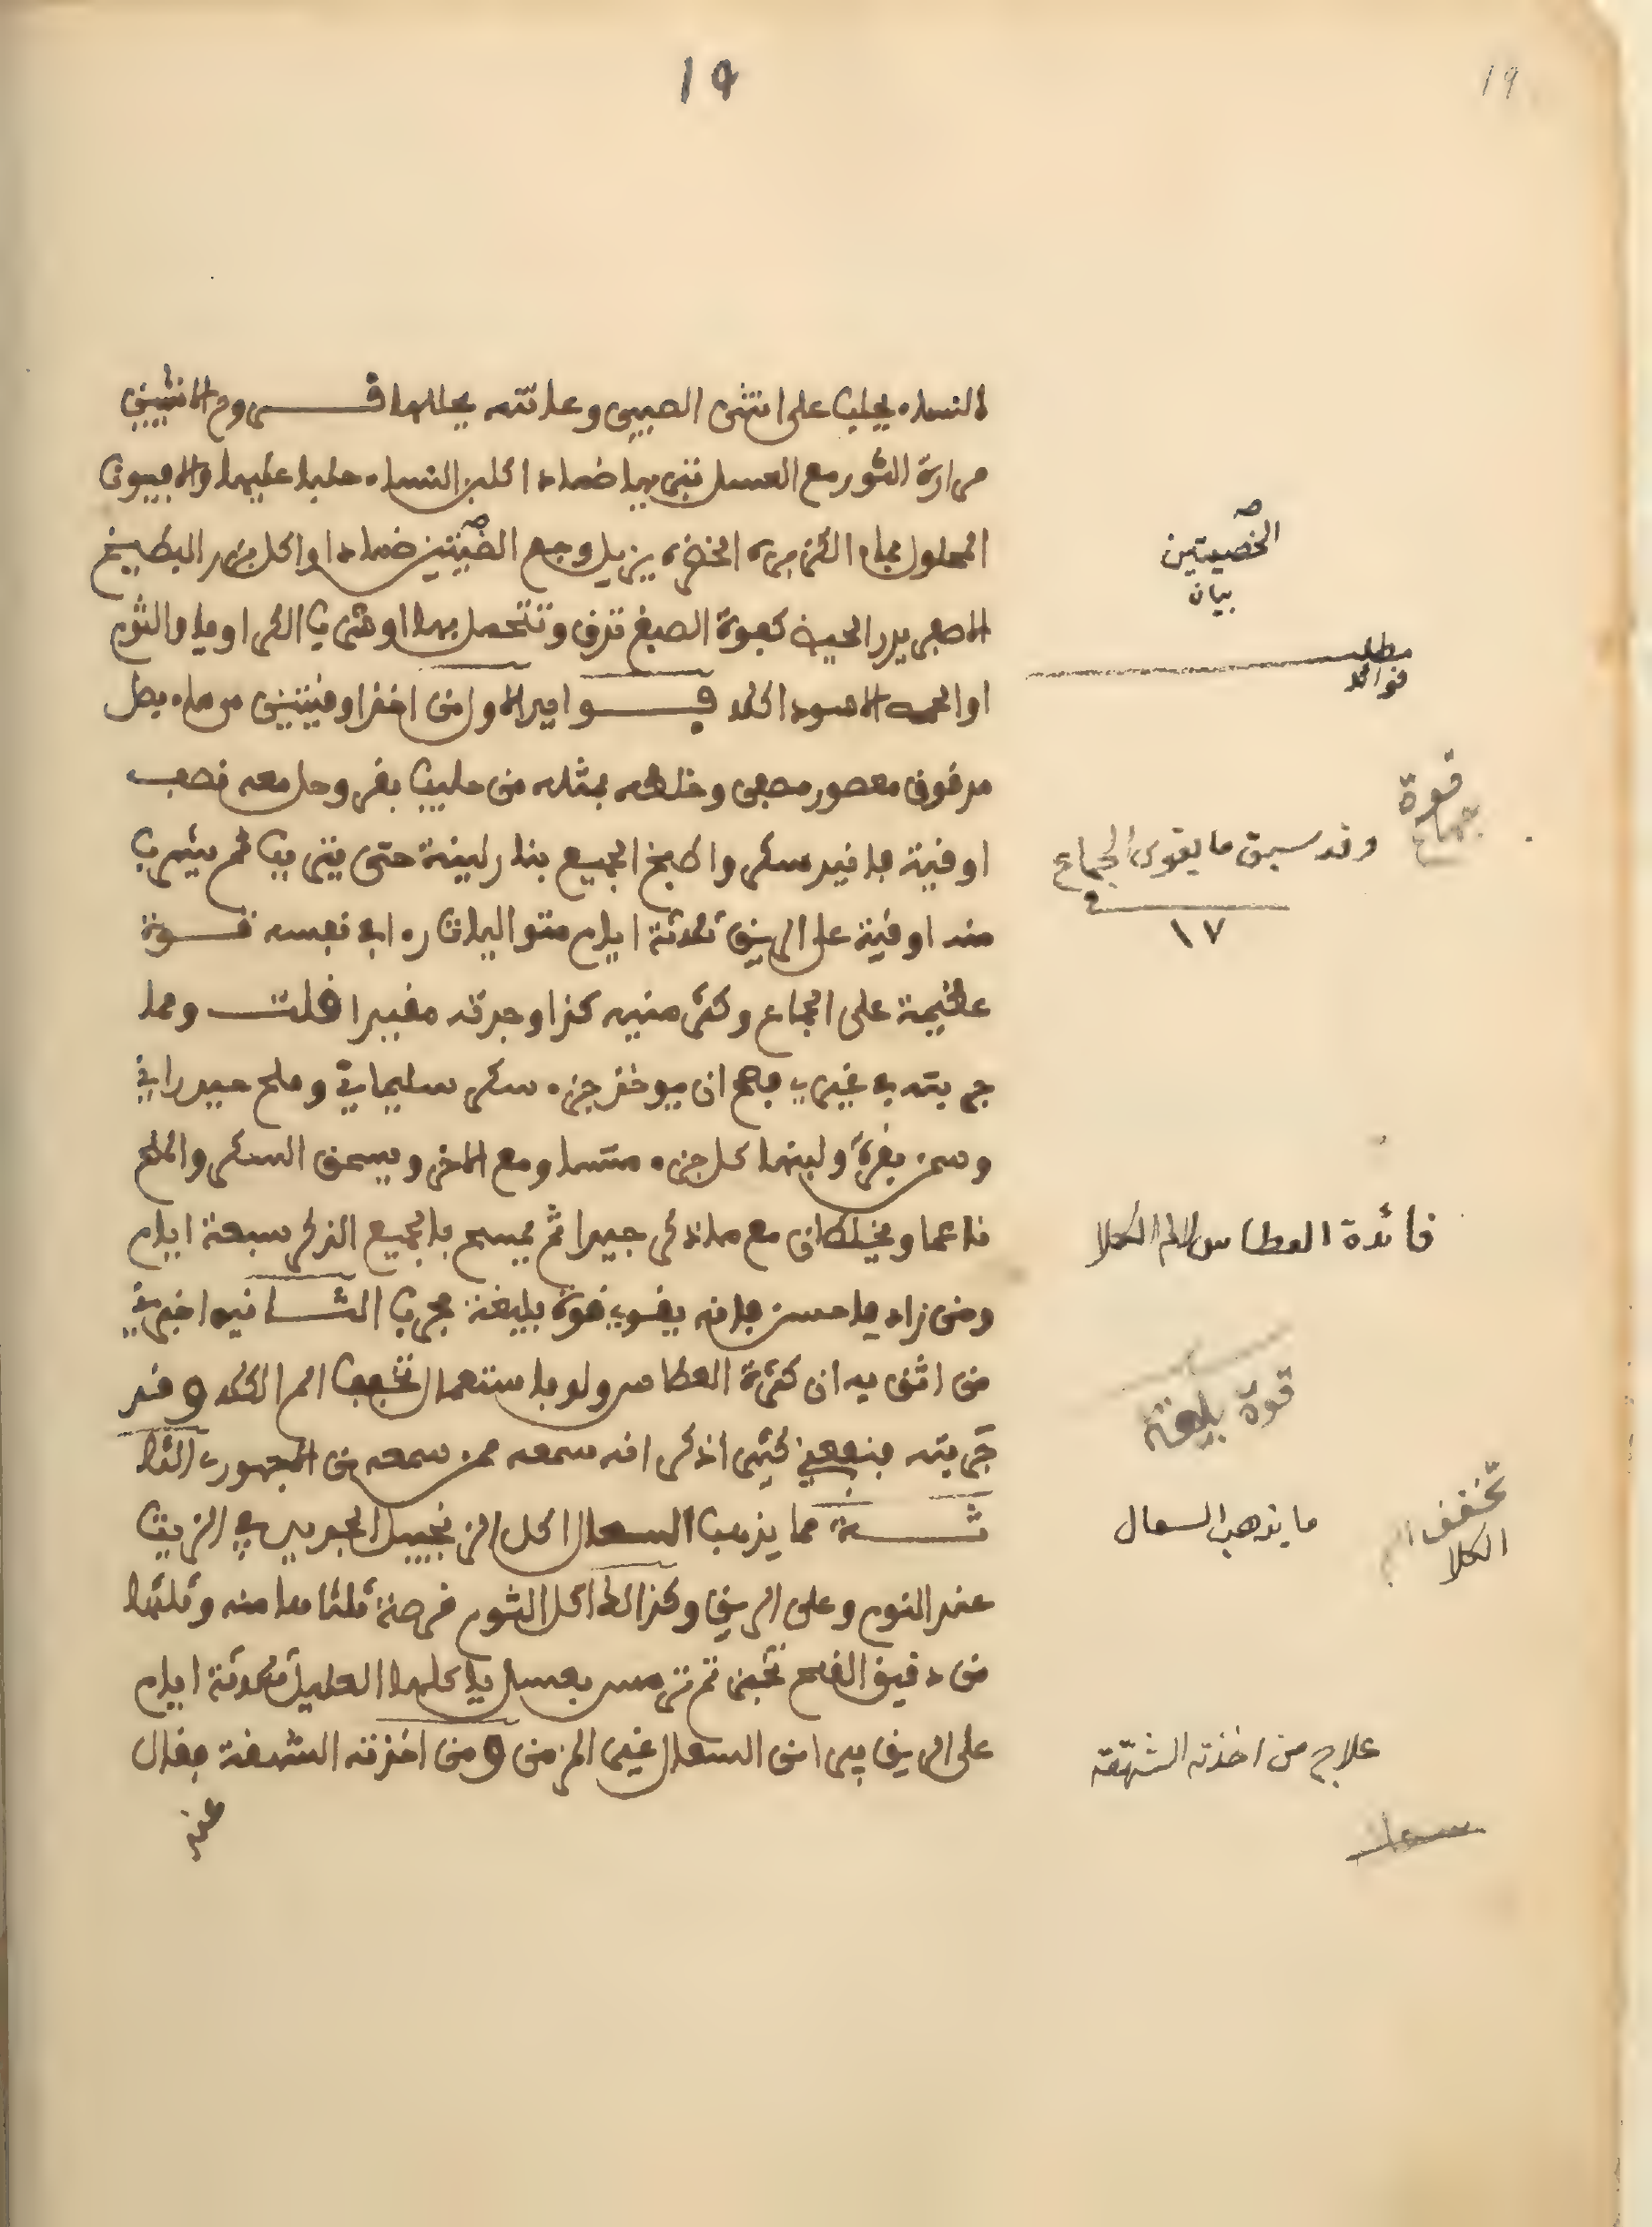 ١٩
١٩
النساء يحلب على انثى الصبي وعانته يحللها قروح الانثيين
مرارة الثور مع العسل تبرئها ضمادا كلبن النساء حلبا عليها والافيون
المحلول بماء الكزبرة الخضرة يزيل وجع الخصيتين ضمادا واكل بزر البطيخ
الاصفر يدر الحيض كفوة الصبغ تدق وتتحمل بها او شرب الكراويا والثوم
او الحمص الاسود اكلا فوايد الاولى اخذ اوقيتين من ماء بصل
مدقوق معصور مصفى وخلطه بمثله من حليب بقر وحل معه نصف
اوقية فانيد سكر واطبخ الجميع بنار لينة حتى يتربب ثم يشرب
منه اوقية على الريق ثلاثة ايام متواليات راى في نفسه قوة
عظيمة على الجماع وكثر منيه كذا وجدته مقيدا قلت ومما
جربته في غيري فصح ان يوخذ جزء سكر سليماني وملح حيدراني
وسمن بقرة ولبنها كل جزء متساو مع الاخر ويسحق السكر والملح
ناعما ويخلطان مع ما ذكر جيدا ثم يمسح بالجميع الذكر سبعة ايام
ومن زاد فاحسن فانه يقوي قوة بليغة مجرب الثانية اخبرني
من اثق به ان كثرة العطاس ولو باستعمال تخفف الم الكلا وقد
جربته فنفعني كثيرا ذكر انه سمعه ممن سمعه من الاجهوري الثا
لثة مما يذهب السعال اكل الزنجبيل المربى في الزيت
عند النوم وعلى الريق وكذلك اكل الثوم قرصة ثلثاها منه وثلثها
من دقيق القمح تعجن ثم تترمس بعسل ياكلها العليل ثلاثة ايام
على الريق يبرا من السعال غير المزمن ومن اخذته الشهقة فقال
الخصيتين
بيان
مطلب
فوائد
قوة
جماع
وقد سبق ما يقوى الجماع
في
١٧
فائدة العطاس لالم الكلا
قوة بليغة
تخفف الم
الكلا
ما يذهب السعال
علاج من اخذته الشهقة
سعال